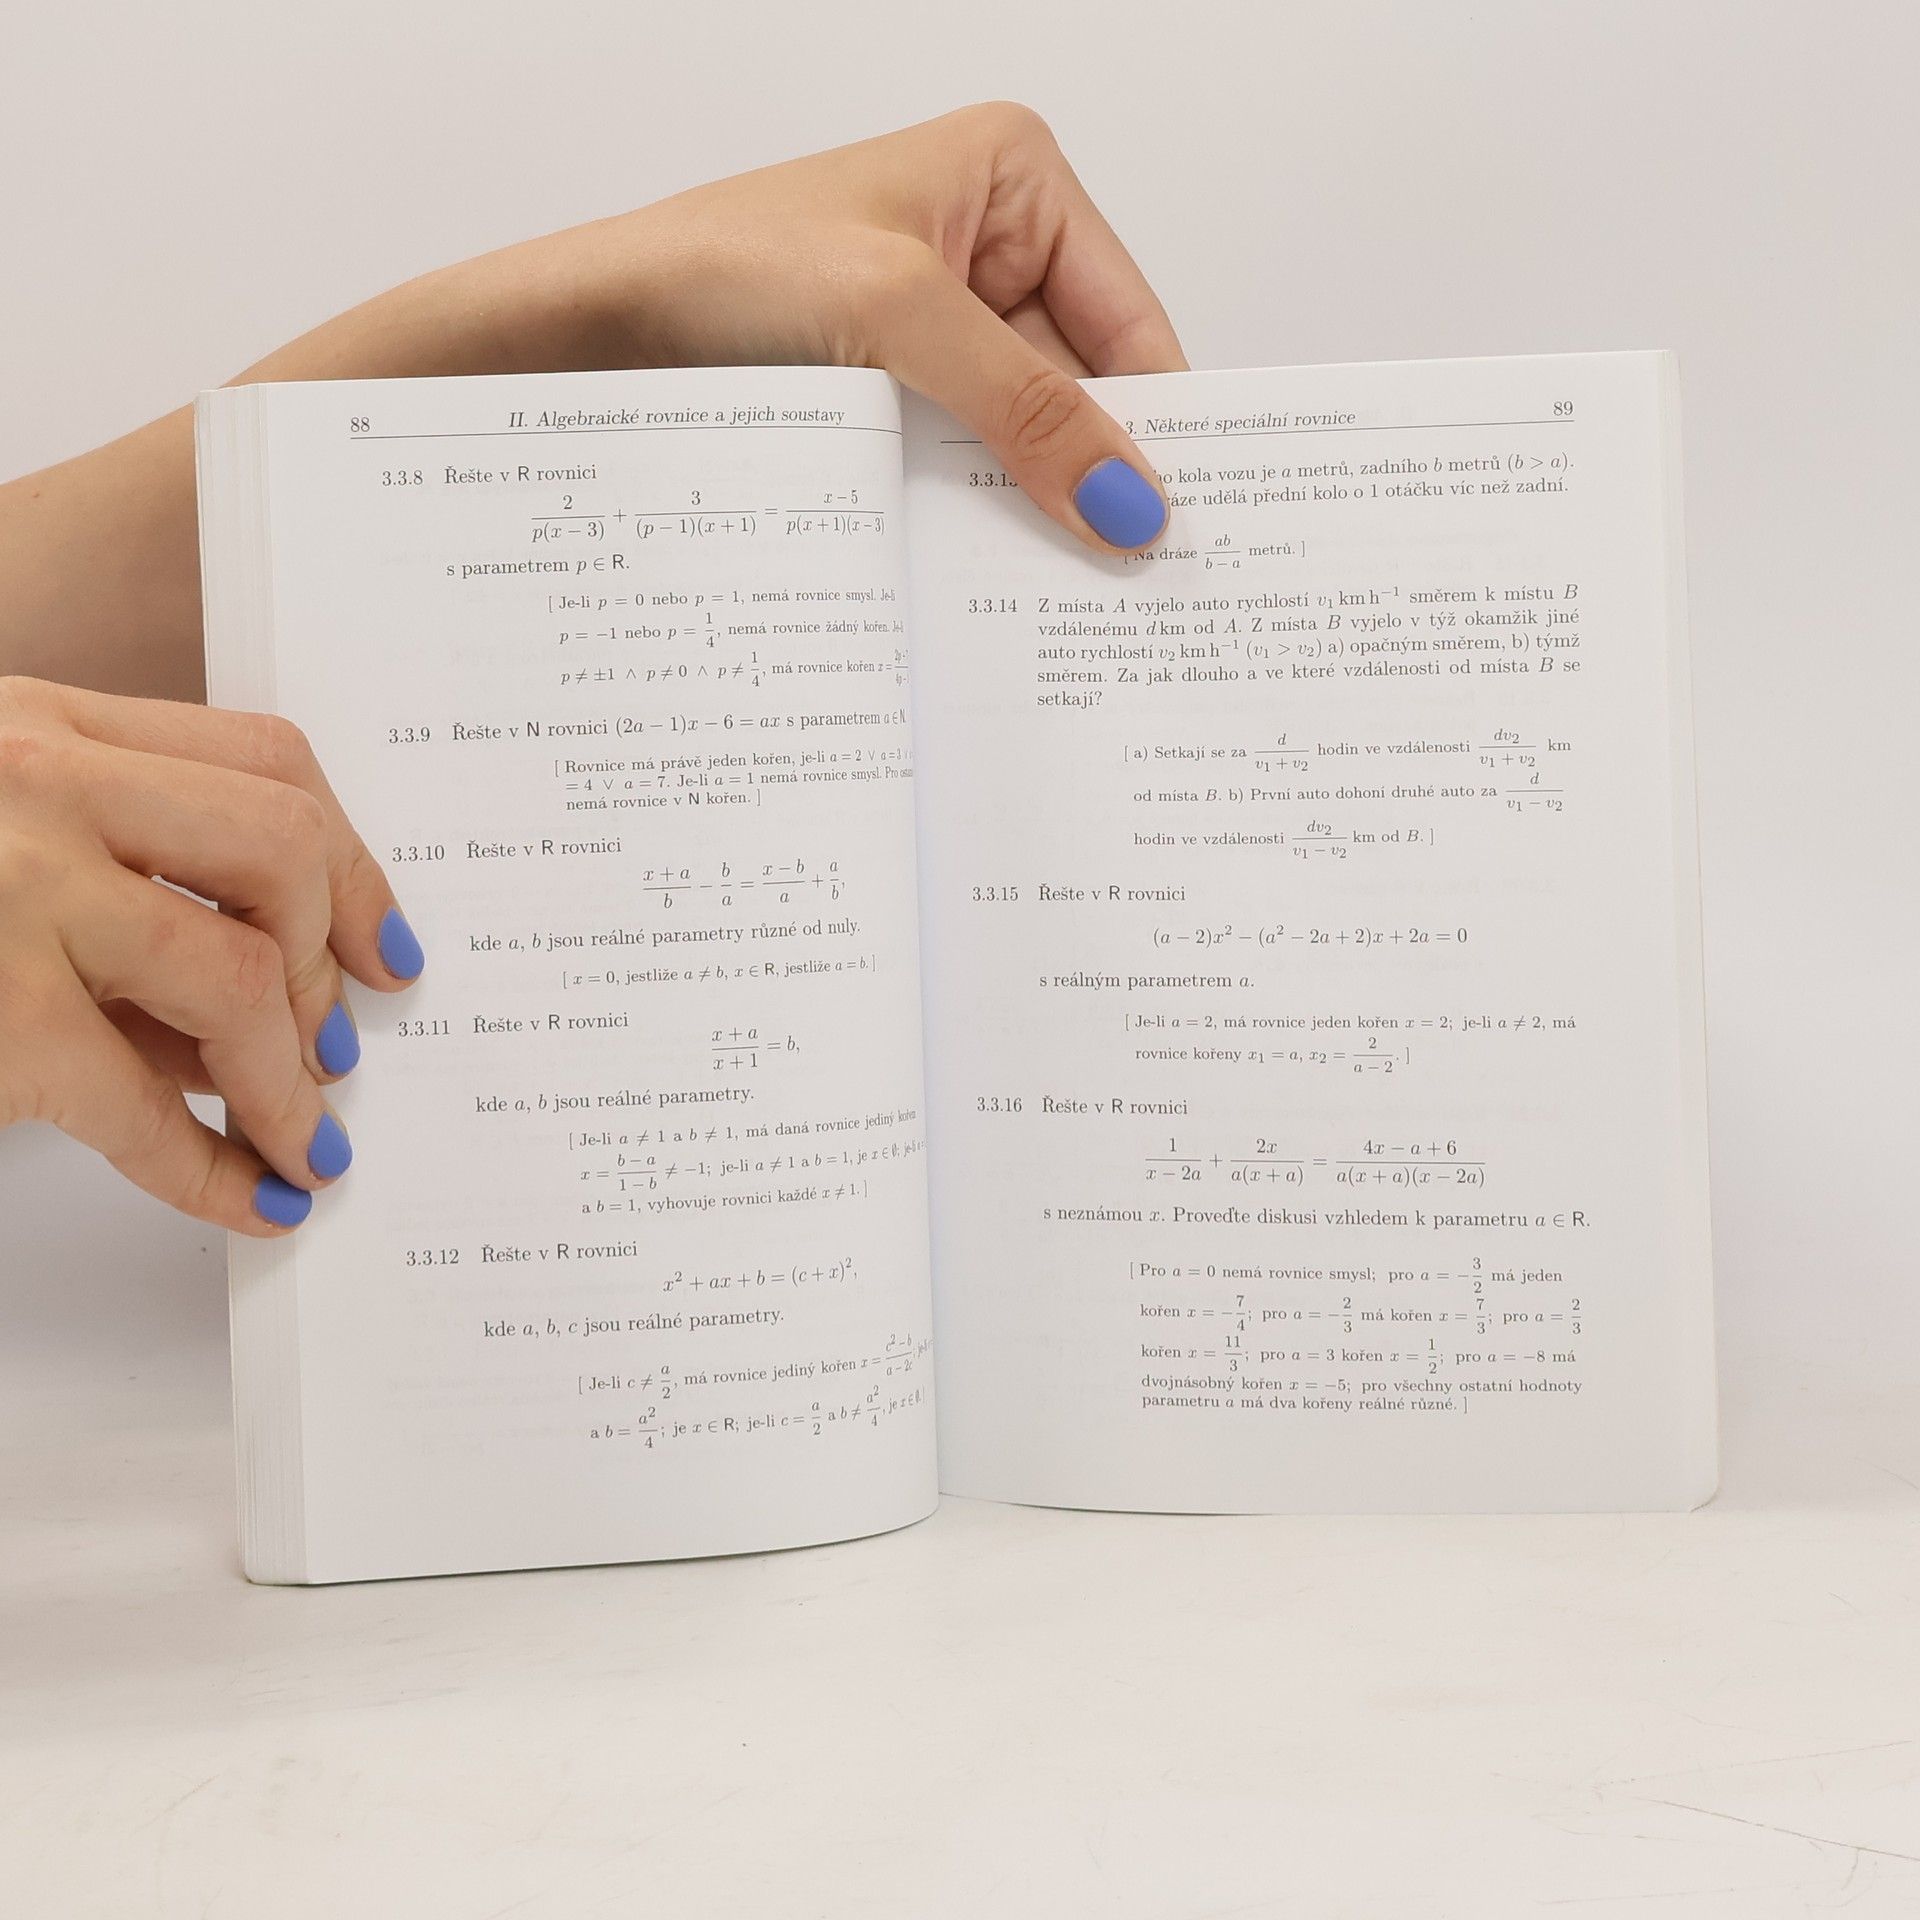 88 II. Algebraické rovnice a jejich soustavy
3.3.8 Řešte v R rovnici
2/(p(x − 3)) + 3/((p − 1)(x + 1)) = (x − 5)/(p(x + 1)(x − 3))
s parametrem p ∈ R.
[ Je-li p = 0 nebo p = 1, nemá rovnice smysl. Je-li
p = −1 nebo p = 1/4, nemá rovnice žádný kořen. Je-li
p ≠ ±1 ∧ p ≠ 0 ∧ p ≠ 1/4, má rovnice kořen x =
3.3.9 Řešte v N rovnici (2a − 1)x − 6 = ax s parametrem a ∈ N
[ Rovnice má právě jeden kořen, je-li a = 2 ∨ a = 3 ∨
= 4 ∨ a = 7. Je-li a = 1 nemá rovnice smysl. Pro
nemá rovnice v N kořen. ]
3.3.10 Řešte v R rovnici
(x + a)/b − b/a = (x − b)/a + a/b,
kde a, b jsou reálné parametry různé od nuly.
[ x = 0, jestliže a ≠ b, x ∈ R, jestliže a = b. ]
3.3.11 Řešte v R rovnici
(x + a)/(x + 1) = b,
kde a, b jsou reálné parametry.
[ Je-li a ≠ 1 a b ≠ 1, má daná rovnice jediný kořen
x = (b − a)/(1 − b) ≠ −1; je-li a ≠ 1 a b = 1, je x ∈ ∅; je-li
a b = 1, vyhovuje rovnici každé x ≠ 1. ]
3.3.12 Řešte v R rovnici
x² + ax + b = (c + x)²,
kde a, b, c jsou reálné parametry.
[ Je-li c ≠ a/2, má rovnice jediný kořen x = (c² − b)/(a − 2c);
a b = a²/4; je x ∈ R; je-li c = a/2 a b ≠ a²/4, je x ∈ ∅. ]
3. Některé speciální rovnice 89
kola vozu je a metrů, zadního b metrů (b > a).
udělá přední kolo o 1 otáčku víc než zadní.
[ Na dráze ab/(b − a) metrů. ]
3.3.14 Z místa A vyjelo auto rychlostí v₁ km h⁻¹ směrem k místu B
vzdálenému d km od A. Z místa B vyjelo v týž okamžik jiné
auto rychlostí v₂ km h⁻¹ (v₁ > v₂) a) opačným směrem, b) týmž
směrem. Za jak dlouho a ve které vzdálenosti od místa B se
setkají?
[ a) Setkají se za d/(v₁ + v₂) hodin ve vzdálenosti dv₂/(v₁ + v₂) km
od místa B. b) První auto dohoní druhé auto za d/(v₁ − v₂)
hodin ve vzdálenosti dv₂/(v₁ − v₂) km od B. ]
3.3.15 Řešte v R rovnici
(a − 2)x² − (a² − 2a + 2)x + 2a = 0
s reálným parametrem a.
[ Je-li a = 2, má rovnice jeden kořen x = 2; je-li a ≠ 2, má
rovnice kořeny x₁ = a, x₂ = 2/(a − 2). ]
3.3.16 Řešte v R rovnici
1/(x − 2a) + 2x/(a(x + a)) = (4x − a + 6)/(a(x + a)(x − 2a))
s neznámou x. Proveďte diskusi vzhledem k parametru a ∈ R.
[ Pro a = 0 nemá rovnice smysl; pro a = −3/2 má jeden
kořen x = −7/4; pro a = −2/3 má kořen x = 7/3; pro a = 2/3
kořen x = 11/3; pro a = 3 kořen x = 1/2; pro a = −8 má
dvojnásobný kořen x = −5; pro všechny ostatní hodnoty
parametru a má dva kořeny reálné různé. ]